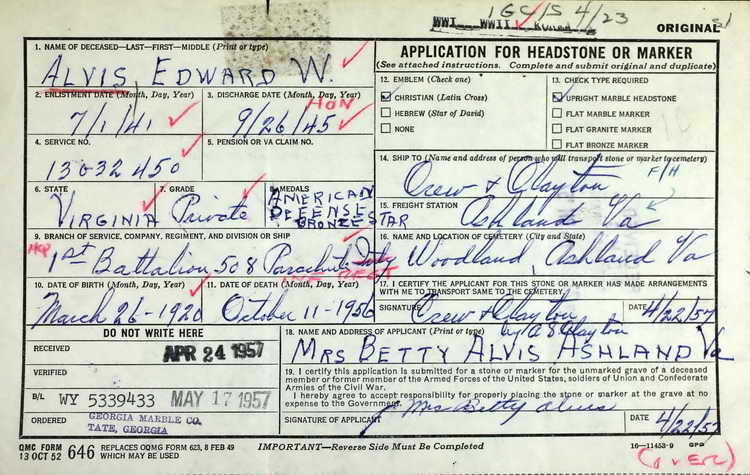 IGC/S 4/23
WWI WWII KOREA
ORIGINAL
1. NAME OF DECEASED—LAST—FIRST—MIDDLE (Print or type)
ALVIS EDWARD W.
2. ENLISTMENT DATE (Month, Day, Year)
3. DISCHARGE DATE (Month, Day, Year)
HON
7/1/41
9/26/45
4. SERVICE NO.
5. PENSION OR VA CLAIM NO.
13032450
6. STATE
7. GRADE
8. MEDALS
VIRGINIA
Private
AMERICAN
DEFENSE
BRONZE STAR
9. BRANCH OF SERVICE, COMPANY, REGIMENT, AND DIVISION OR SHIP
HQ
1st Battalion, 508 Parachute Inf
REGT
10. DATE OF BIRTH (Month, Day, Year)
11. DATE OF DEATH (Month, Day, Year)
March 26-1920
October 11-1956
DO NOT WRITE HERE
RECEIVED
APR 24 1957
VERIFIED
B/L
WY 5339433
MAY 17 1957
ORDERED
GEORGIA MARBLE CO.
TATE, GEORGIA
APPLICATION FOR HEADSTONE OR MARKER
(See attached instructions. Complete and submit original and duplicate)
12. EMBLEM (Check one)
CHRISTIAN (Latin Cross)
HEBREW (Star of David)
NONE
13. CHECK TYPE REQUIRED
UPRIGHT MARBLE HEADSTONE
FLAT MARBLE MARKER
FLAT GRANITE MARKER
FLAT BRONZE MARKER
14. SHIP TO (Name and address of person who will transport stone or marker to cemetery)
Crew & Clayton F/H
15. FREIGHT STATION
Ashland Va
16. NAME AND LOCATION OF CEMETERY (City and State)
Woodland, Ashland Va
17. I CERTIFY THE APPLICANT FOR THIS STONE OR MARKER HAS MADE ARRANGEMENTS
WITH ME TO TRANSPORT SAME TO THE CEMETERY.
SIGNATURE
Crew & Clayton
by A S Clayton
DATE
4/22/57
18. NAME AND ADDRESS OF APPLICANT (Print or type)
MRS BETTY ALVIS ASHLAND Va
19. I certify this application is submitted for a stone or marker for the unmarked grave of a deceased
member or former member of the Armed Forces of the United States, soldiers of Union and Confederate
Armies of the Civil War.
I hereby agree to accept responsibility for properly placing the stone or marker at the grave at no
expense to the Government.
SIGNATURE OF APPLICANT
Mrs Betty Alvis
DATE
4/22/57
QMC FORM
13 OCT 52
646
REPLACES OQMG FORM 623, 8 FEB 49
WHICH MAY BE USED
IMPORTANT—Reverse Side Must Be Completed
16—11453-9 GPO
(OVER)